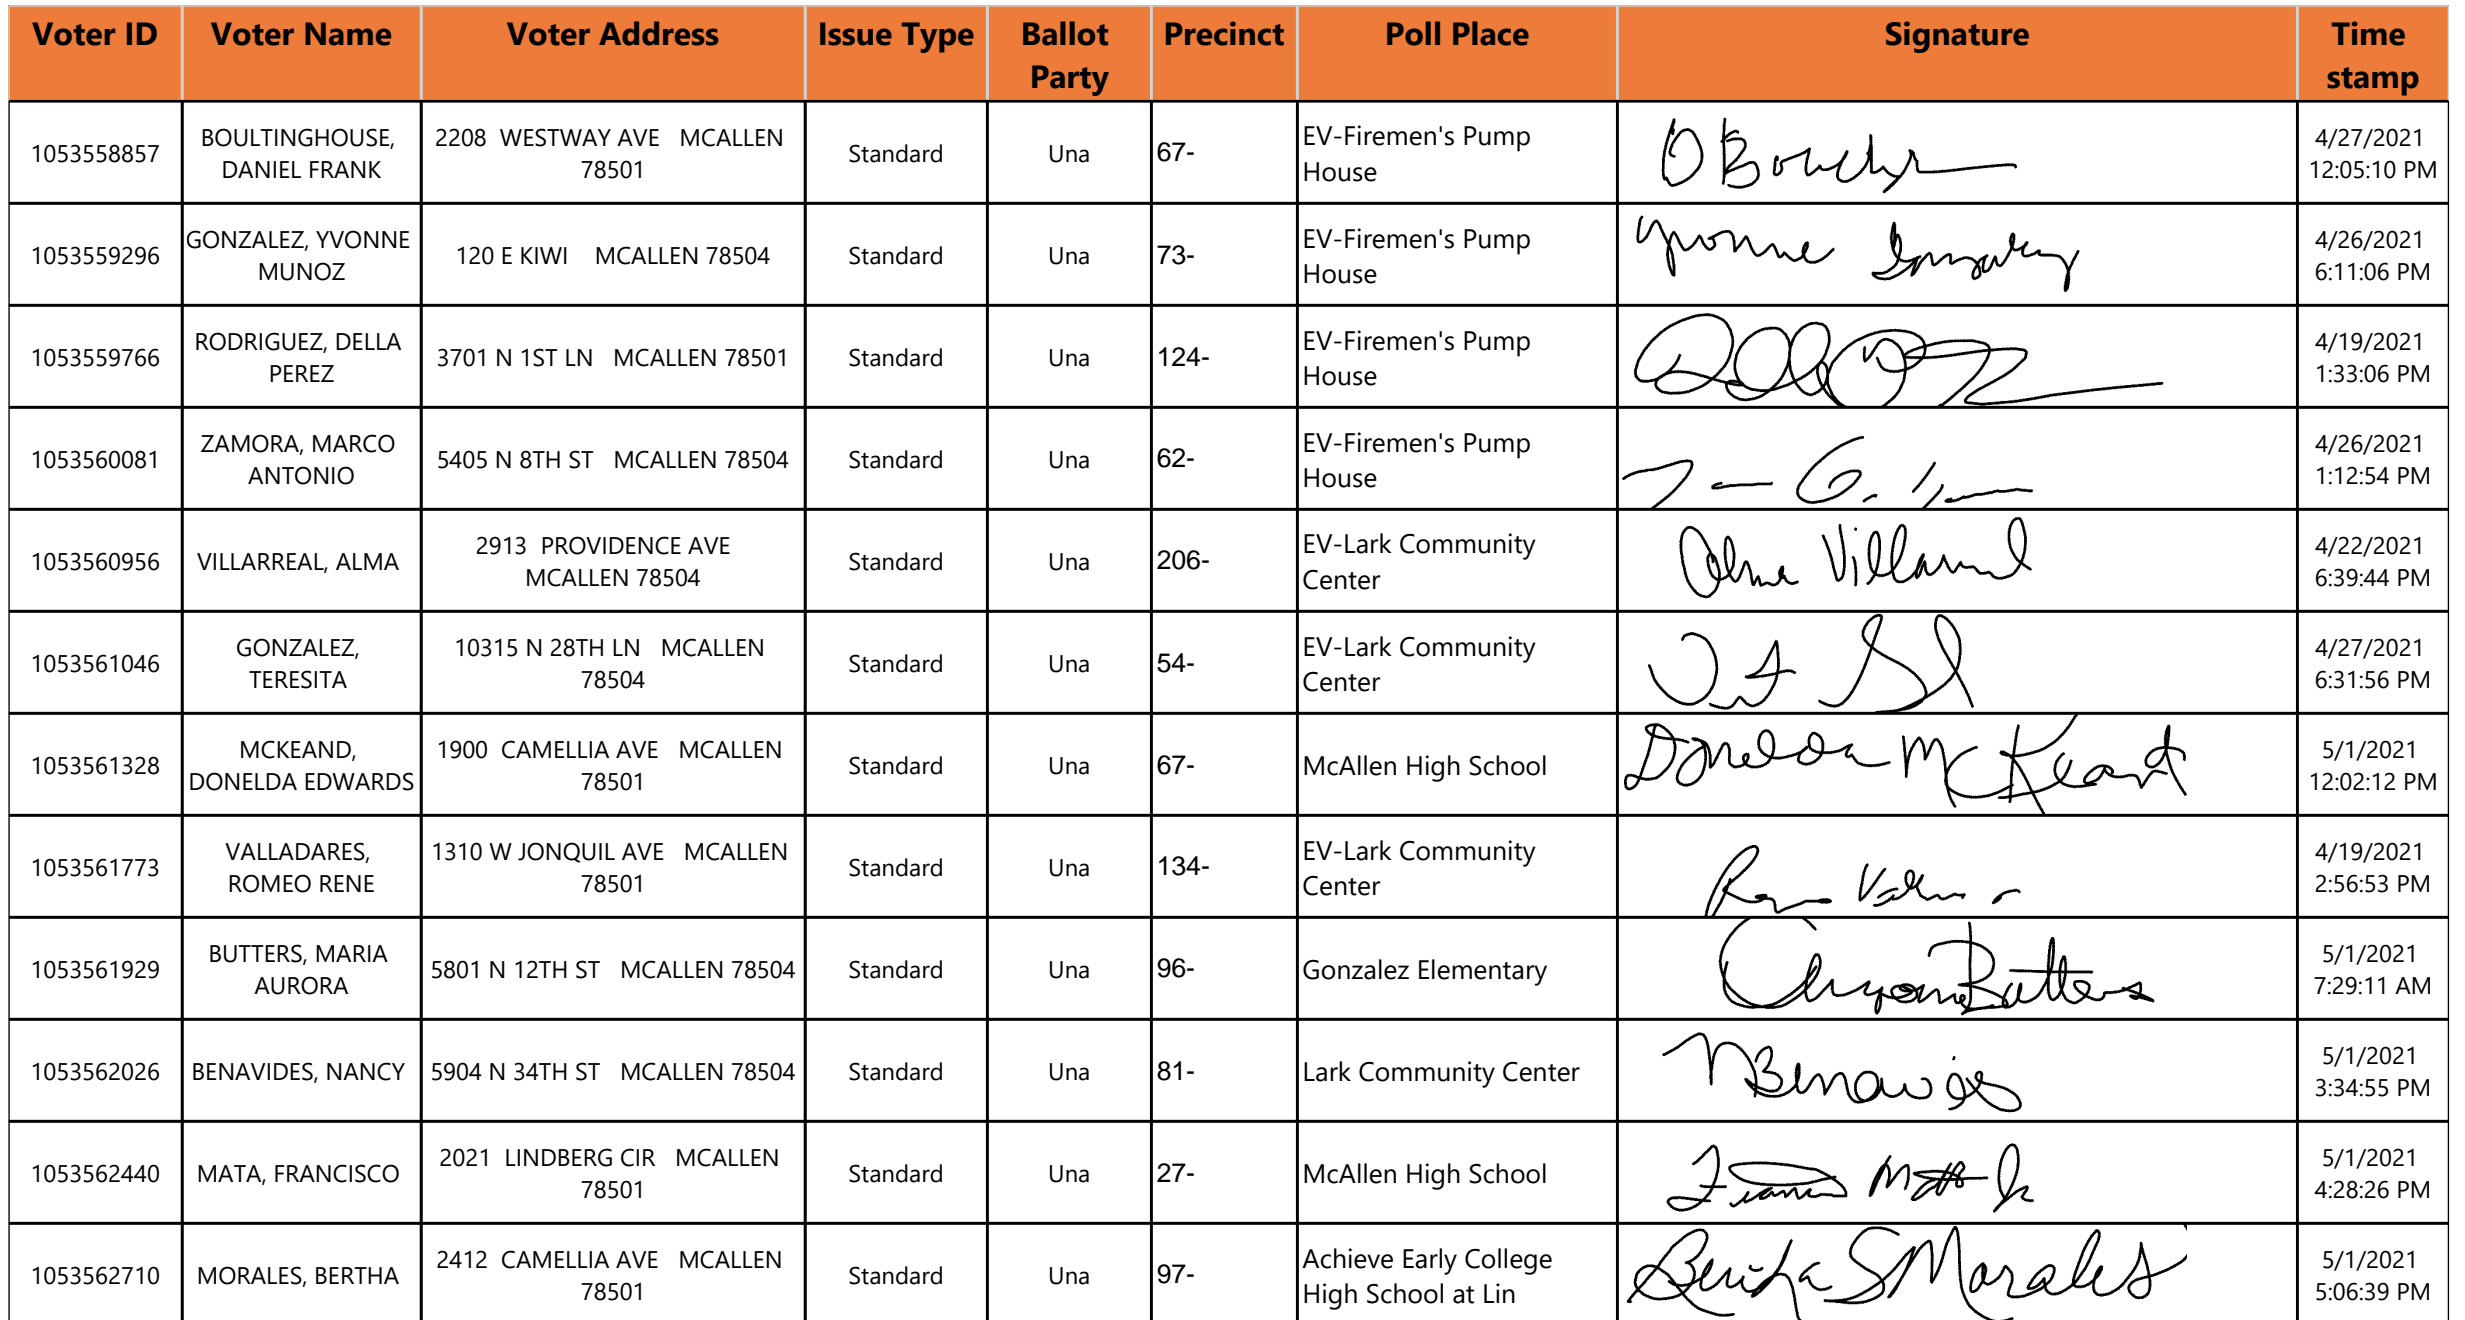 Voter ID Voter Name Voter Address Issue Type Ballot Party Precinct Poll Place Signature Time stamp
1053558857 BOULTINGHOUSE, DANIEL FRANK 2208 WESTWAY AVE MCALLEN 78501 Standard Una 67- EV-Firemen's Pump House 4/27/2021 12:05:10 PM
1053559296 GONZALEZ, YVONNE MUNOZ 120 E KIWI MCALLEN 78504 Standard Una 73- EV-Firemen's Pump House Yvonne Gonzalez 4/26/2021 6:11:06 PM
1053559766 RODRIGUEZ, DELLA PEREZ 3701 N 1ST LN MCALLEN 78501 Standard Una 124- EV-Firemen's Pump House 4/19/2021 1:33:06 PM
1053560081 ZAMORA, MARCO ANTONIO 5405 N 8TH ST MCALLEN 78504 Standard Una 62- EV-Firemen's Pump House 4/26/2021 1:12:54 PM
1053560956 VILLARREAL, ALMA 2913 PROVIDENCE AVE MCALLEN 78504 Standard Una 206- EV-Lark Community Center Alma Villarreal 4/22/2021 6:39:44 PM
1053561046 GONZALEZ, TERESITA 10315 N 28TH LN MCALLEN 78504 Standard Una 54- EV-Lark Community Center 4/27/2021 6:31:56 PM
1053561328 MCKEAND, DONELDA EDWARDS 1900 CAMELLIA AVE MCALLEN 78501 Standard Una 67- McAllen High School Donelda McKeand 5/1/2021 12:02:12 PM
1053561773 VALLADARES, ROMEO RENE 1310 W JONQUIL AVE MCALLEN 78501 Standard Una 134- EV-Lark Community Center 4/19/2021 2:56:53 PM
1053561929 BUTTERS, MARIA AURORA 5801 N 12TH ST MCALLEN 78504 Standard Una 96- Gonzalez Elementary Butters 5/1/2021 7:29:11 AM
1053562026 BENAVIDES, NANCY 5904 N 34TH ST MCALLEN 78504 Standard Una 81- Lark Community Center N Benavides 5/1/2021 3:34:55 PM
1053562440 MATA, FRANCISCO 2021 LINDBERG CIR MCALLEN 78501 Standard Una 27- McAllen High School 5/1/2021 4:28:26 PM
1053562710 MORALES, BERTHA 2412 CAMELLIA AVE MCALLEN 78501 Standard Una 97- Achieve Early College High School at Lin Bertha S Morales 5/1/2021 5:06:39 PM